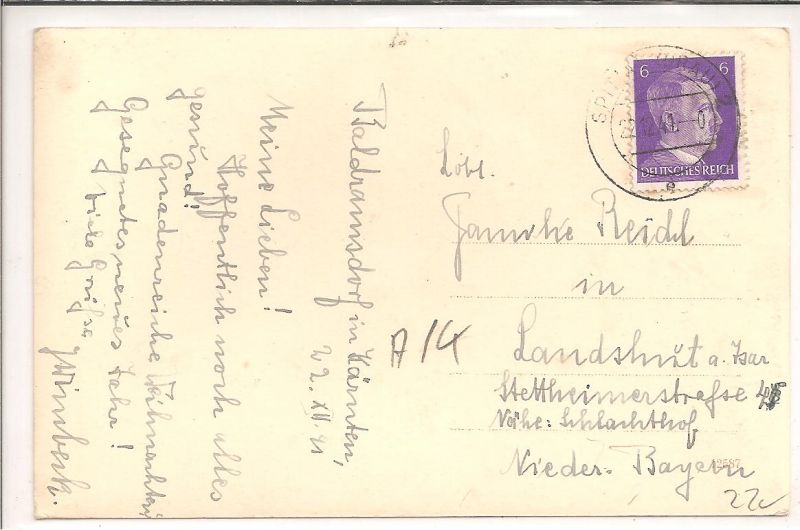 Baldramsdorf in Kärnten,
22. XII. 41
Meine Lieben!
Hoffentlich noch alles
gesund!
Gnadenreiche Weihnachten
Gesegnetes neues Jahr!
Viele Grüße
6 6
DEUTSCHES REICH
Löbl.
Reidl
in
Landshut a. Isar
Stettheimerstraße
Nähe: Schlachthof
Nieder-Bayern
A/4